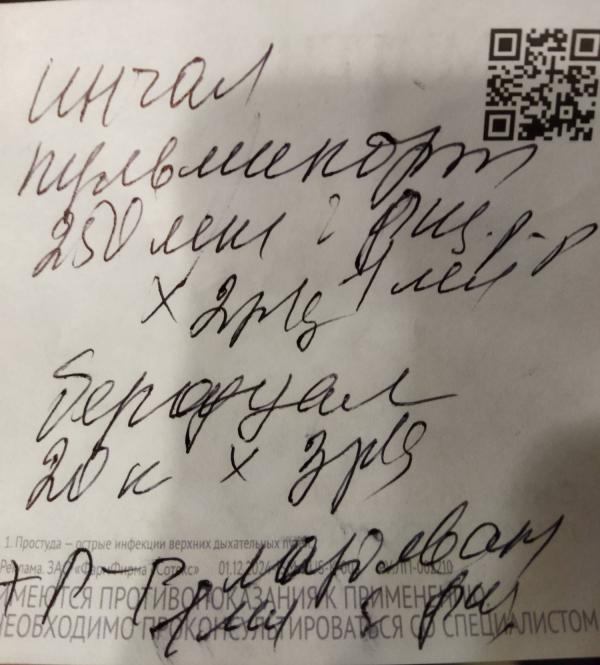 ингал
пульмикорт
250 мкг физ. р-р
х 2р/д 1 мл
беродуал
20 к х 3р/д
1. Простуда — острые инфекции верхних дыхательных
Реклама. ЗАО «ФармФирма «Сотекс» 01.12.2024
ИМЕЮТСЯ ПРОТИВОПОКАЗАНИЯ К ПРИМЕНЕНИЮ
НЕОБХОДИМО ПРОКОНСУЛЬТИРОВАТЬСЯ СО СПЕЦИАЛИСТОМ